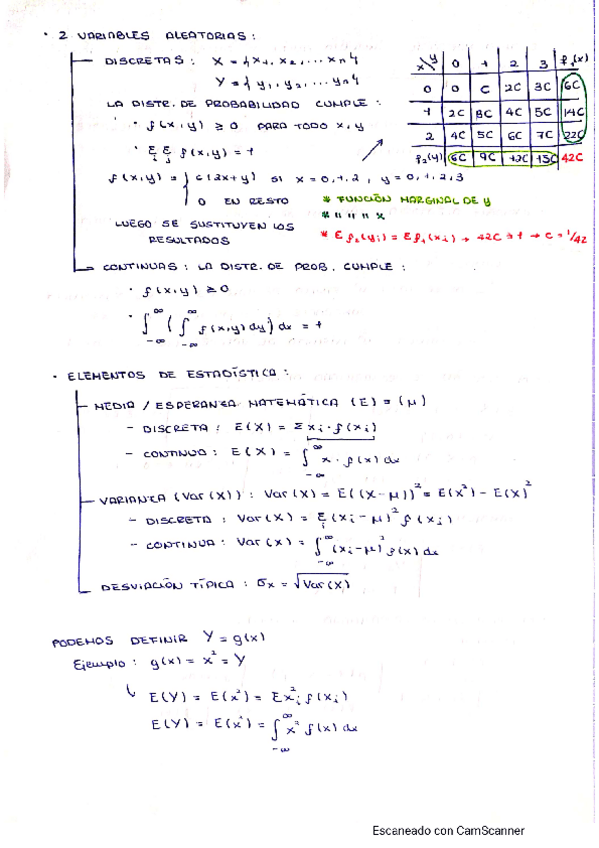 · 2 VARIABLES ALEATORIAS :
DISCRETAS : X = {x1, x2, ... xn}
Y = {y1, y2, ... yn}
LA DISTR. DE PROBABILIDAD CUMPLE :
· f(x,y) ≥ 0 PARA TODO x,y
· Σi Σj f(x,y) = 1
f(x,y) = { c(2x+y) SI x = 0,1,2 , y = 0,1,2,3
0 EN RESTO
LUEGO SE SUSTITUYEN LOS
RESULTADOS
x\y 0 1 2 3 f1(x)
0 0 C 2C 3C 6C
1 2C 3C 4C 5C 14C
2 4C 5C 6C 7C 22C
f2(y) 6C 9C 12C 15C 42C
* FUNCIÓN MARGINAL DE y
* " " " x
* Σ f2(yi) = Σ f1(xi) → 42C = 1 → C = 1/42
CONTINUAS : LA DISTR. DE PROB. CUMPLE :
· f(x,y) ≥ 0
· ∫_{-∞}^{∞} (∫_{-∞}^{∞} f(x,y) dy) dx = 1
· ELEMENTOS DE ESTADÍSTICA :
MEDIA / ESPERANZA MATEMÁTICA (E) = (μ)
- DISCRETA : E(X) = Σ xi · f(xi)
- CONTINUO : E(X) = ∫_{-∞}^{∞} x · f(x) dx
VARIANZA (Var(X)) : Var(X) = E((X-μ))² = E(x²) - E(X)²
- DISCRETA : Var(X) = Σi (xi - μ)² f(xi)
- CONTINUA : Var(X) = ∫_{-∞}^{∞} (xi - μ)² f(x) dx
DESVIACIÓN TÍPICA : σx = √Var(X)
PODEMOS DEFINIR Y = g(x)
Ejemplo : g(x) = x² = Y
↳ E(Y) = E(x²) = Σ x²i f(xi)
E(Y) = E(x²) = ∫_{-∞}^{∞} x² f(x) dx
Escaneado con CamScanner